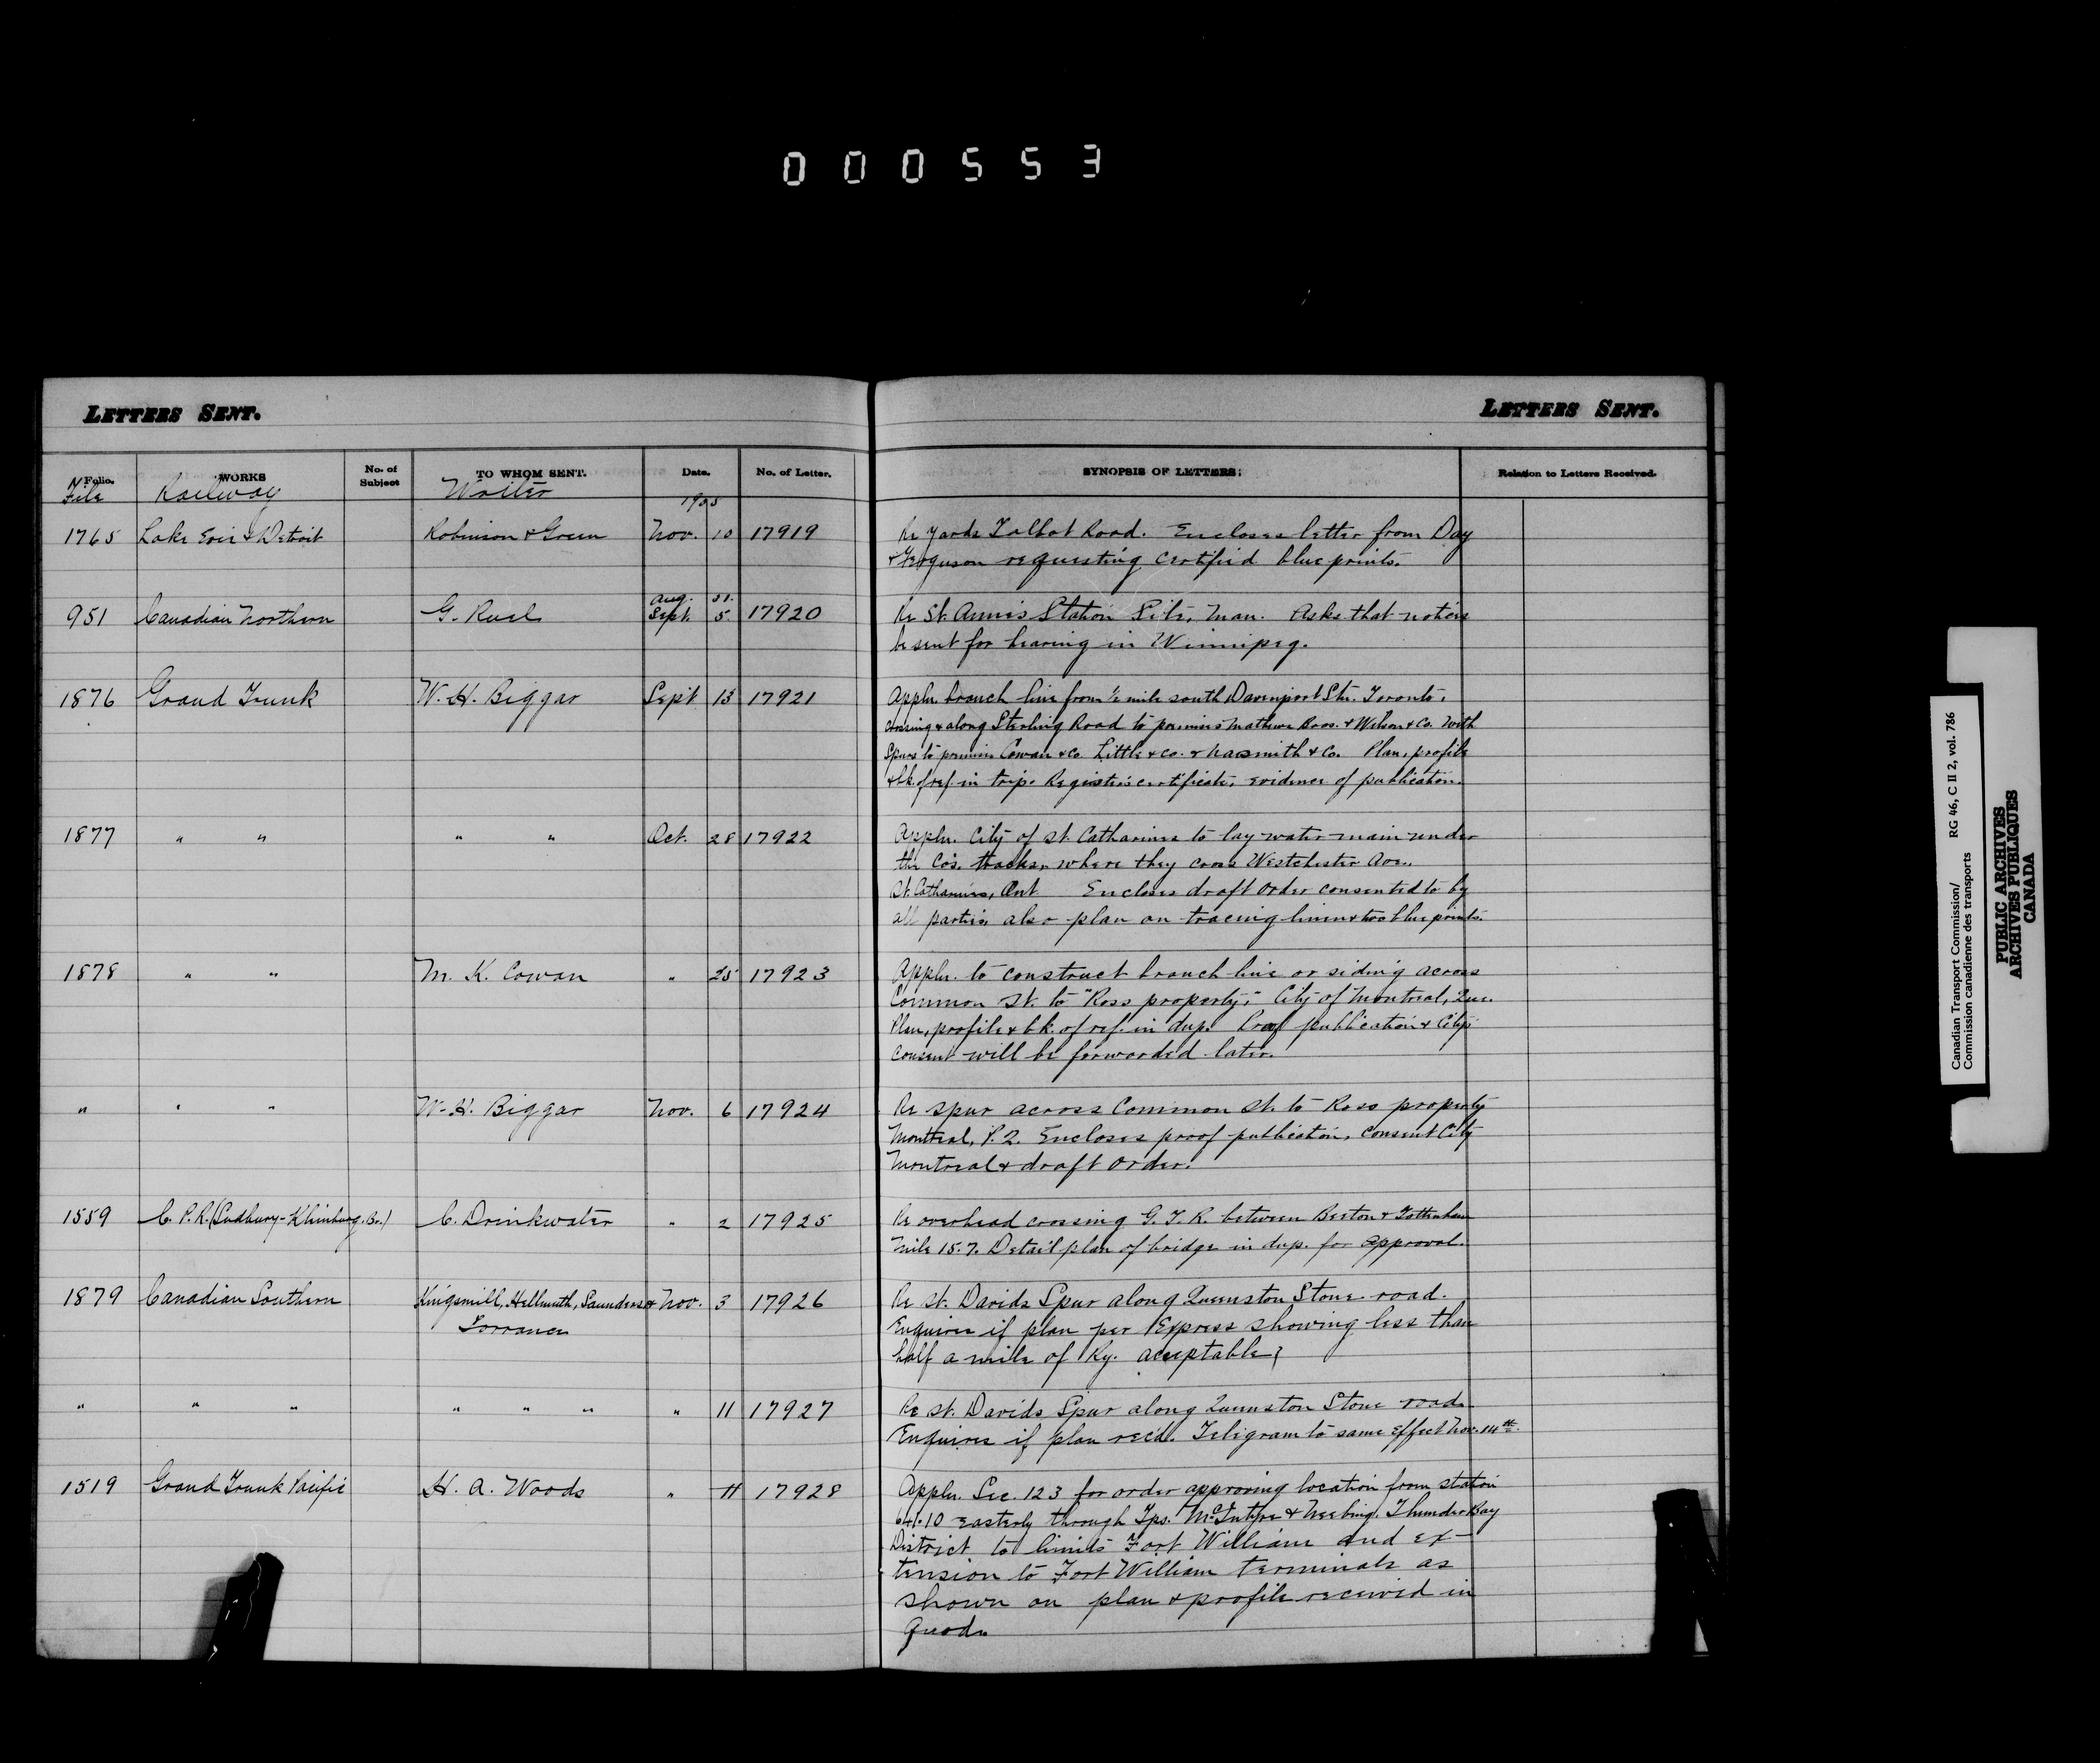 000553
LETTERS SENT.
LETTERS SENT.
Folio. WORKS No. of Subject TO WHOM SENT. Date. No. of Letter. SYNOPSIS OF LETTERS. Relation to Letters Received.
File Railway Writer 1905
1765 Lake Erie & Detroit Robinson & Green Nov. 10 17919 Re yards Talbot Road. Encloses letter from Day
& Ferguson requesting certified blue prints.
951 Canadian Northern G. Ruel Aug. 31. Sept. 5. 17920 Re St. Annes Station Site, Man. Asks that notice
be sent for hearing in Winnipeg.
1876 Grand Trunk W. H. Biggar Sept 13 17921 Appln. branch line from ½ mile south Davenport Stn. Toronto,
crossing & along Sterling Road to premises Mathews Bros. & Wilson & Co. with
Spurs to premises Cowan & Co. Little & Co. & Nasmith & Co. Plan, profile
& bk. of ref. in trip. Registrar's certificate, evidence of publication.
1877 " " " " Oct. 28 17922 Appln. City of St. Catharines to lay water main under
the Co's. tracks, where they cross Westchester Ave.,
St. Catharines, Ont. Encloses draft order consented to by
all parties, also plan on tracing linen & two blue prints.
1878 " " M. K. Cowan " 25 17923 Appln. to construct branch line or siding across
Common St. to "Ross property," City of Montreal, Que.
Plan, profile & bk. of ref. in dup. Proof publication & City's
consent will be forwarded later.
" " " W. H. Biggar Nov. 6 17924 Re spur across Common St. to Ross property
Montreal, P.Q. Encloses proof publication, consent City
Montreal & draft order.
1559 C. P. R. (Sudbury-Kleinburg. Br.) C. Drinkwater " 2 17925 Re overhead crossing G. T. R. between Beeton & Tottenham
Mile 15.7. Detail plan of bridge in dup. for approval.
1879 Canadian Southern Kingsmill, Hellmuth, Saunders & Torrance Nov. 3 17926 Re St. Davids Spur along Queenston Stone road.
Enquires if plan per Express showing less than
half a mile of Ry. acceptable?
" " " " " " " 11 17927 Re St. Davids Spur along Queenston Stone road.
Enquires if plan recd. Telegram to same effect Nov. 14th.
1519 Grand Trunk Pacific H. A. Woods " 11 17928 Appln. Sec. 123 for order approving location from station
641.10 easterly through Tps. McIntyre & Neebing, Thunder Bay
District to limits Fort William and ex-
tension to Fort William terminals as
shown on plan & profile received in
quad.
Canadian Transport Commission/ RG 46, C II 2, vol. 786
Commission canadienne des transports
PUBLIC ARCHIVES
ARCHIVES PUBLIQUES
CANADA